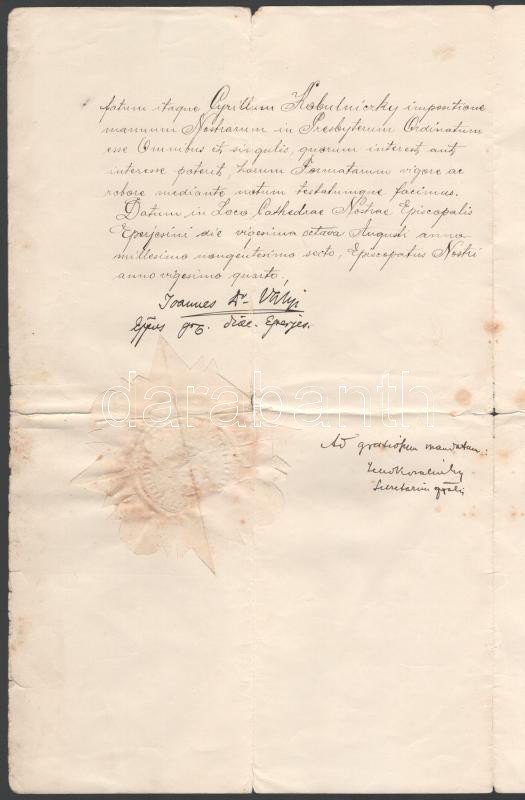 fatum itaque Cyrillum Kobulniczky impositione
manuum Nostrarum in Presbyterum Ordinatum
esse Omnibus et singulis, quorum interest, aut
interesse poterit, harum Formatarum vigore ac
robore mediante notum testatumque facimus.
Datum in Loco Cathedrae Nostrae Episcopalis
Eperjesini die vigesima octava Augusti anno
millesimo nongentesimo sexto, Episcopatus Nostri
anno vigesimo quarto.
Joannes Dr Vályi
Eppus gr. diae. Eperjes.
darabanth.com
Ad gratiosum mandatum: